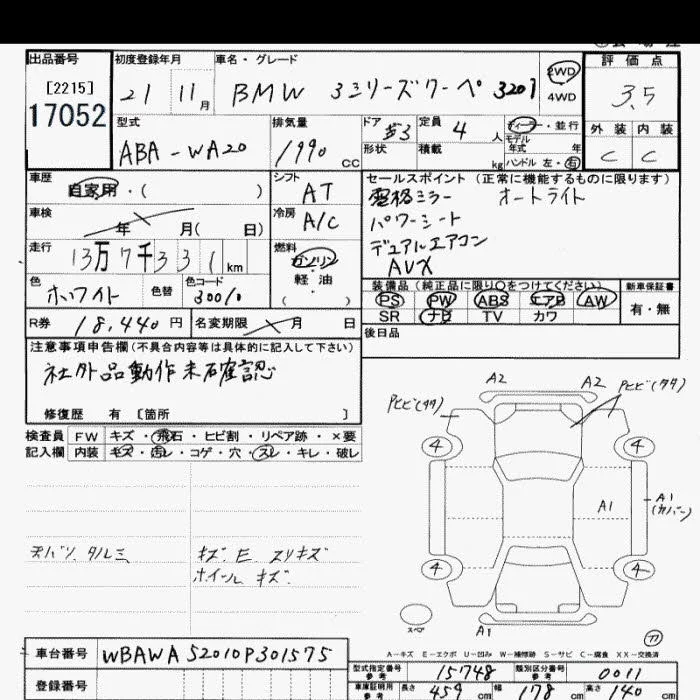 出品番号 初度登録年月 車名・グレード 評価点
[2215] 21 11月 BMW 3シリーズクーペ 320i 2WD 3.5
17052 4WD
型式 排気量 ドア 定員 ディーラー・並行 外装 内装
ABA-WA20 1990 CC 3 4人 モデル年式 年 C C
形状 積載 kg ハンドル 左・右
車歴 シフト セールスポイント (正常に機能するものに限ります)
自家用・( ) AT 電格ミラー オートライト
車検 冷房 パワーシート
年 月( 日) A/C デュアルエアコン
走行 燃料 AUX
13万7千331km ガソリン
色 色替 色コード 軽油 装備品(純正品に限り○をつけてください) 新車保証書
ホワイト 300/0 ( ) PS PW ABS エアB AW 有・無
SR ナビ TV カワ
R券 18,440円 名変期限 月 日 後日品
注意事項申告欄(不具合内容等は具体的に記入して下さい)
社外品動作未確認
修復歴 有 [箇所 ]
検査員 FW キズ・飛石・ヒビ割・リペア跡・×要
記入欄 内装 キズ・汚レ・コゲ・穴・スレ・キレ・破レ
天バリ タルミ キズ E スリキズ
ホイール キズ
A2 A2
Pヒビ(タタ) Pヒビ(タタ)
4 4
A1 A1(カバー)
4 4
スペア A1
A-キズ E-エクボ U-凹み W-補修跡 S-サビ C-腐食 XX-交換済
車台番号 WBAWA52010P301575
登録番号
型式指定番号 参考 15748 類別区分番号 参考 0011
車庫証明用 参考 長さ 459cm 幅 178cm 高さ 140cm